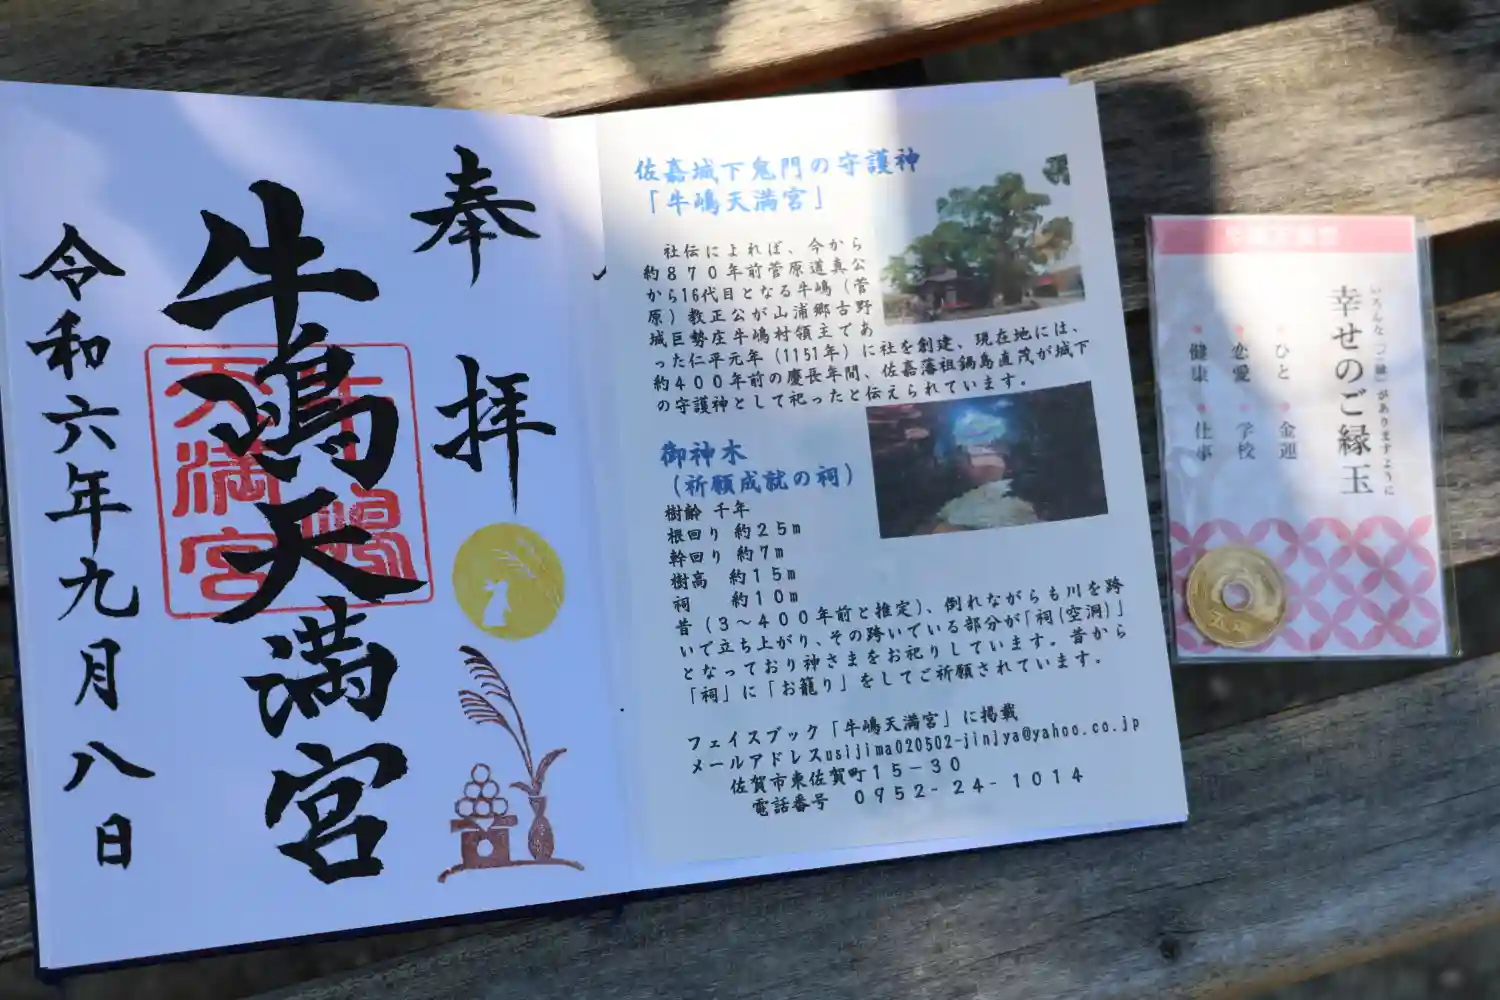 奉拝
牛嶋天満宮
牛嶋
天満宮
令和六年九月八日
佐嘉城下鬼門の守護神
「牛嶋天満宮」
社伝によれば、今から
約870年前菅原道真公
から16代目となる牛嶋(菅
原)教正公が山浦郷古野
城巨勢庄牛嶋村領主であ
った仁平元年(1151年)に社を創建、現在地には、
約400年前の慶長年間、佐嘉藩祖鍋島直茂が城下
の守護神として祀ったと伝えられています。
御神木
(祈願成就の祠)
樹齢 千年
根回り 約25m
幹回り 約7m
樹高 約15m
祠 約10m
昔(3〜400年前と推定)、倒れながらも川を跨
いで立ち上がり、その跨いでいる部分が「祠(空洞)」
となっており神さまをお祀りしています。昔から
「祠」に「お籠り」をしてご祈願されています。
フェイスブック「牛嶋天満宮」に掲載
メールアドレスusijima020502-jinjya@yahoo.co.jp
佐賀市東佐賀町15-30
電話番号 0952-24-1014
いろんな「ご縁」がありますように
幸せのご縁玉
ひと 金運
恋愛 学校
健康 仕事
五円